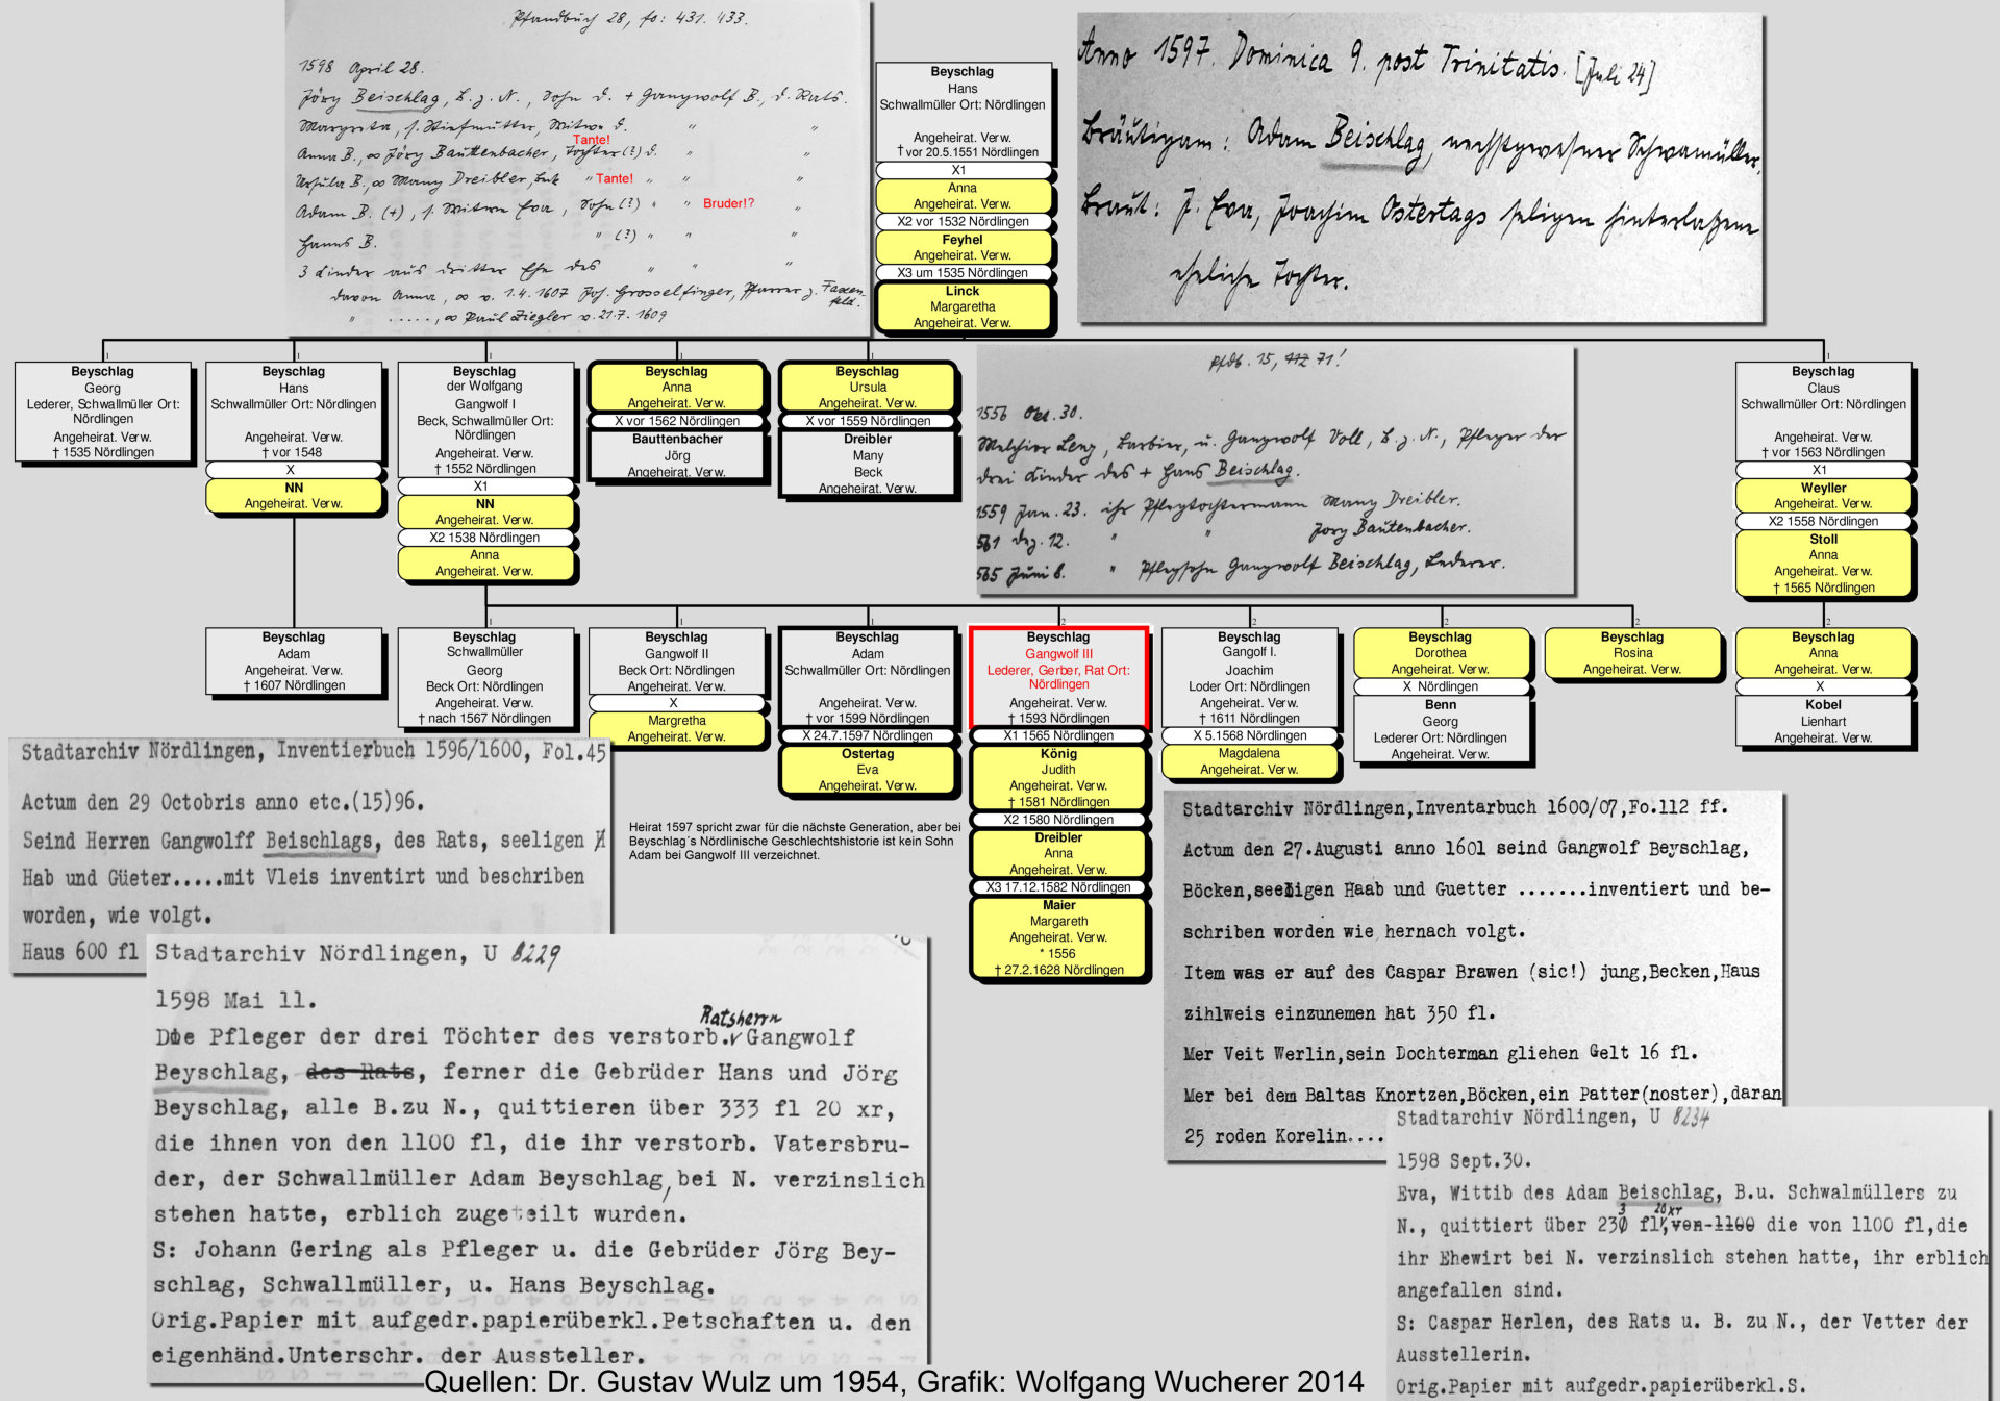 Pfandbuch 28, fo: 431. 433.
1598 April 28.
Jörg Beischlag, B. z. N., Sohn d. + Gangwolf B., d. Rats.
Margreta, s. Stiefmutter, Witwe d. " "
Tante!
Anna B., ∞ Jörg Bauttenbacher, Tochter (?) d. " "
Ursula B., ∞ Many Dreibler, Beck " Tante! " " "
Adam B. (+), s. Witwe Eva, Sohn (?) " " Bruder!? "
Hanns B. " (?) " " "
3 Kinder aus dritter Ehe des " " "
davon Anna, ∞ v. 1.4.1607 Joh. Grosselfinger, Pfarrer z.
" ....., ∞ Paul Ziegler v. 21.7.1609
Beyschlag
Hans
Schwallmüller Ort: Nördlingen
Angeheirat. Verw.
† vor 20.5.1551 Nördlingen
X1
Anna
Angeheirat. Verw.
X2 vor 1532 Nördlingen
Feyhel
Angeheirat. Verw.
X3 um 1535 Nördlingen
Linck
Margaretha
Angeheirat. Verw.
Anno 1597. Dominica 9. post Trinitatis. [Juli 24]
Bräutigam: Adam Beischlag, nechstgewesner Schwamüller,
Braut: J. Eva, Joachim Ostertags seligen hinterlaßene
eheliche Tochter.
Beyschlag
Georg
Lederer, Schwallmüller Ort:
Nördlingen
Angeheirat. Verw.
† 1535 Nördlingen
1
Beyschlag
Hans
Schwallmüller Ort: Nördlingen
Angeheirat. Verw.
† vor 1548
X
NN
Angeheirat. Verw.
1
Beyschlag
der Wolfgang
Gangwolf I
Beck, Schwallmüller Ort:
Nördlingen
Angeheirat. Verw.
† 1552 Nördlingen
X1
NN
Angeheirat. Verw.
X2 1538 Nördlingen
Anna
Angeheirat. Verw.
1
Beyschlag
Anna
Angeheirat. Verw.
X vor 1562 Nördlingen
Bauttenbacher
Jörg
Angeheirat. Verw.
1
Beyschlag
Ursula
Angeheirat. Verw.
X vor 1559 Nördlingen
Dreibler
Many
Beck
Angeheirat. Verw.
Pfdb. 15, 71!
1556 Okt. 30.
Melchior Leng, Barbier, u. Gangwolf Voll, B. z. N., Pfleger der
drei Kinder des + Hans Beischlag.
1559 Jan. 23. ihr Pflegtochtermann Many Dreibler.
561 Dez. 12. " " Jörg Bautenbacher.
565 Juni 8. " Pflegsohn Gangwolf Beischlag, Lederer.
1
Beyschlag
Claus
Schwallmüller Ort: Nördlingen
Angeheirat. Verw.
† vor 1563 Nördlingen
X1
Weyller
Angeheirat. Verw.
X2 1558 Nördlingen
Stoll
Anna
Angeheirat. Verw.
† 1565 Nördlingen
Beyschlag
Adam
Angeheirat. Verw.
† 1607 Nördlingen
1
Beyschlag
Schwallmüller
Georg
Beck Ort: Nördlingen
Angeheirat. Verw.
† nach 1567 Nördlingen
1
Beyschlag
Gangwolf II
Beck Ort: Nördlingen
Angeheirat. Verw.
X
Margretha
Angeheirat. Verw.
1
Beyschlag
Adam
Schwallmüller Ort: Nördlingen
Angeheirat. Verw.
† vor 1599 Nördlingen
X 24.7.1597 Nördlingen
Ostertag
Eva
Angeheirat. Verw.
2
Beyschlag
Gangwolf III
Lederer, Gerber, Rat Ort:
Nördlingen
Angeheirat. Verw.
† 1593 Nördlingen
X1 1565 Nördlingen
König
Judith
Angeheirat. Verw.
† 1581 Nördlingen
X2 1580 Nördlingen
Dreibler
Anna
Angeheirat. Verw.
X3 17.12.1582 Nördlingen
Maier
Margareth
Angeheirat. Verw.
* 1556
† 27.2.1628 Nördlingen
2
Beyschlag
Gangolf I.
Joachim
Loder Ort: Nördlingen
Angeheirat. Verw.
† 1611 Nördlingen
X 5.1568 Nördlingen
Magdalena
Angeheirat. Verw.
2
Beyschlag
Dorothea
Angeheirat. Verw.
X Nördlingen
Benn
Georg
Lederer Ort: Nördlingen
Angeheirat. Verw.
2
Beyschlag
Rosina
Angeheirat. Verw.
2
Beyschlag
Anna
Angeheirat. Verw.
X
Kobel
Lienhart
Angeheirat. Verw.
Heirat 1597 spricht zwar für die nächste Generation, aber bei
Beyschlag´s Nördlinische Geschlechtshistorie ist kein Sohn
Adam bei Gangwolf III verzeichnet.
Stadtarchiv Nördlingen, Inventierbuch 1596/1600, Fol.45
Actum den 29 Octobris anno etc.(15)96.
Seind Herren Gangwolff Beischlags, des Rats, seeligen
Hab und Güeter.....mit Vleis inventirt und beschriben
worden, wie volgt.
Haus 600 fl
Stadtarchiv Nördlingen, U 8229
1598 Mai 11.
Ratsherrn
Die Pfleger der drei Töchter des verstorb. Gangwolf
Beyschlag, des Rats, ferner die Gebrüder Hans und Jörg
Beyschlag, alle B.zu N., quittieren über 333 fl 20 xr,
die ihnen von den 1100 fl, die ihr verstorb. Vatersbru-
der, der Schwallmüller Adam Beyschlag, bei N. verzinslich
stehen hatte, erblich zugeteilt wurden.
S: Johann Gering als Pfleger u. die Gebrüder Jörg Bey-
schlag, Schwallmüller, u. Hans Beyschlag.
Orig.Papier mit aufgedr.papierüberkl.Petschaften u. den
eigenhänd.Unterschr. der Aussteller.
Stadtarchiv Nördlingen,Inventarbuch 1600/07,Fo.112 ff.
Actum den 27.Augusti anno 1601 seind Gangwolf Beyschlag,
Böcken,seeligen Haab und Guetter .......inventiert und be-
schriben worden wie hernach volgt.
Item was er auf des Caspar Brawen (sic!) jung,Becken,Haus
zihlweis einzunemen hat 350 fl.
Mer Veit Werlin,sein Dochterman gliehen Gelt 16 fl.
Mer bei dem Baltas Knortzen,Böcken,ein Patter(noster),daran
25 roden Korelin....
Stadtarchiv Nördlingen, U 8234
1598 Sept.30.
Eva, Wittib des Adam Beischlag, B.u. Schwalmüllers zu
3 20 xr
N., quittiert über 230 fl, von 1100 die von 1100 fl,die
ihr Ehewirt bei N. verzinslich stehen hatte, ihr erblich
angefallen sind.
S: Caspar Herlen, des Rats u. B. zu N., der Vetter der
Ausstellerin.
Orig.Papier mit aufgedr.papierüberkl.S.
Quellen: Dr. Gustav Wulz um 1954, Grafik: Wolfgang Wucherer 2014